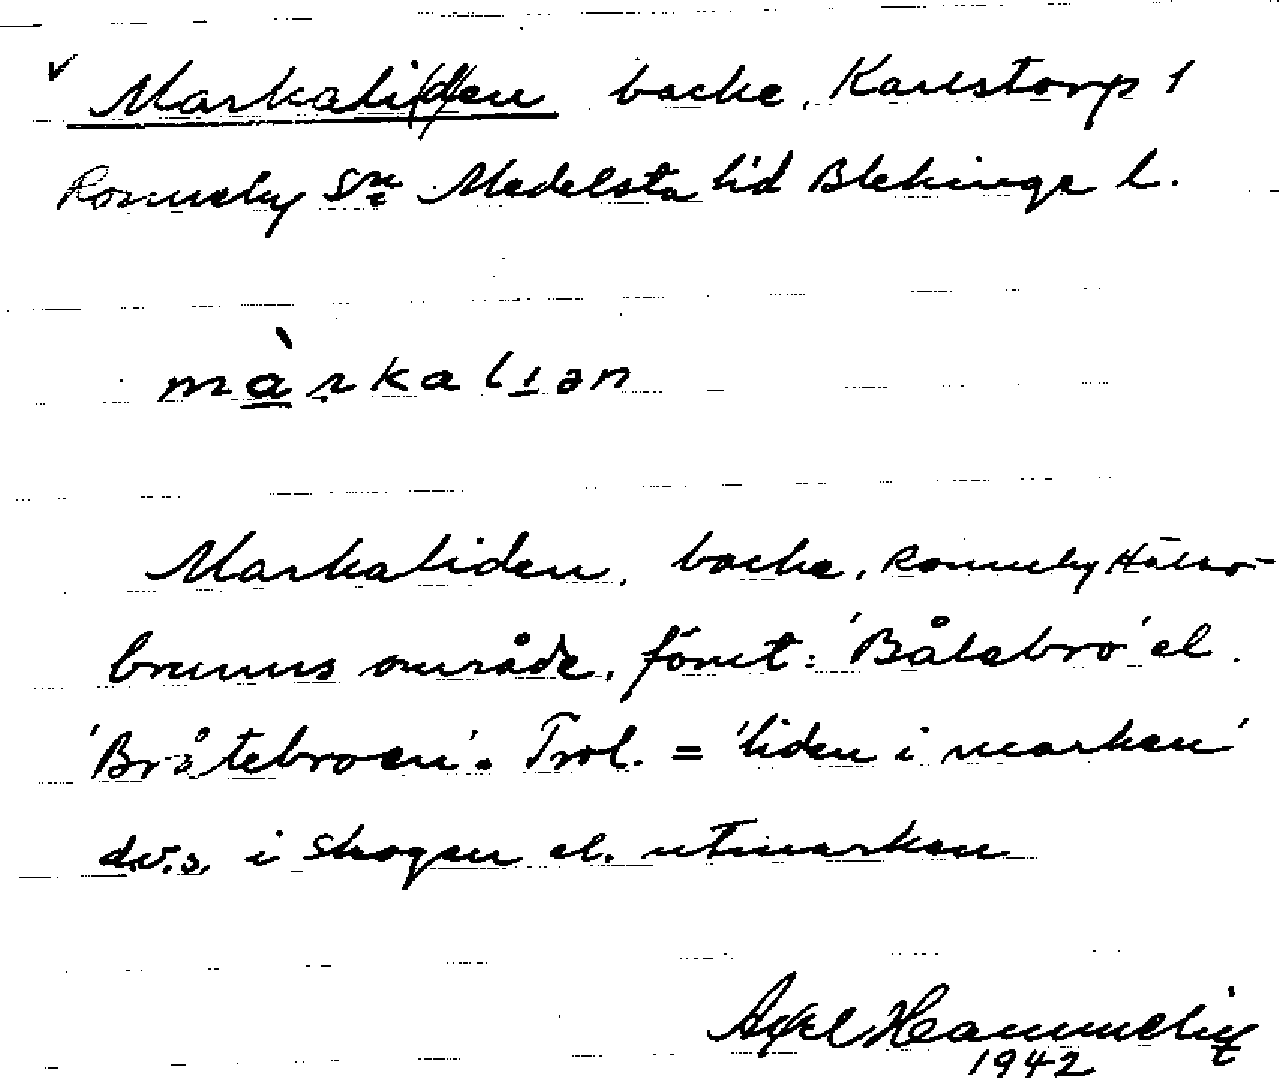 v Markali(d)en backe, Karlstorp 1
Ronneby Sn Medelsta hd Blekinge l.
màrkalıən
Markaliden, backe, Ronneby Hälso-
brunns område, förut: 'Båtabro' el.
'Bråtebroen'. Trol. = 'liden i marken'
d.v.s. i skogen el. utmarken
Axel
1942